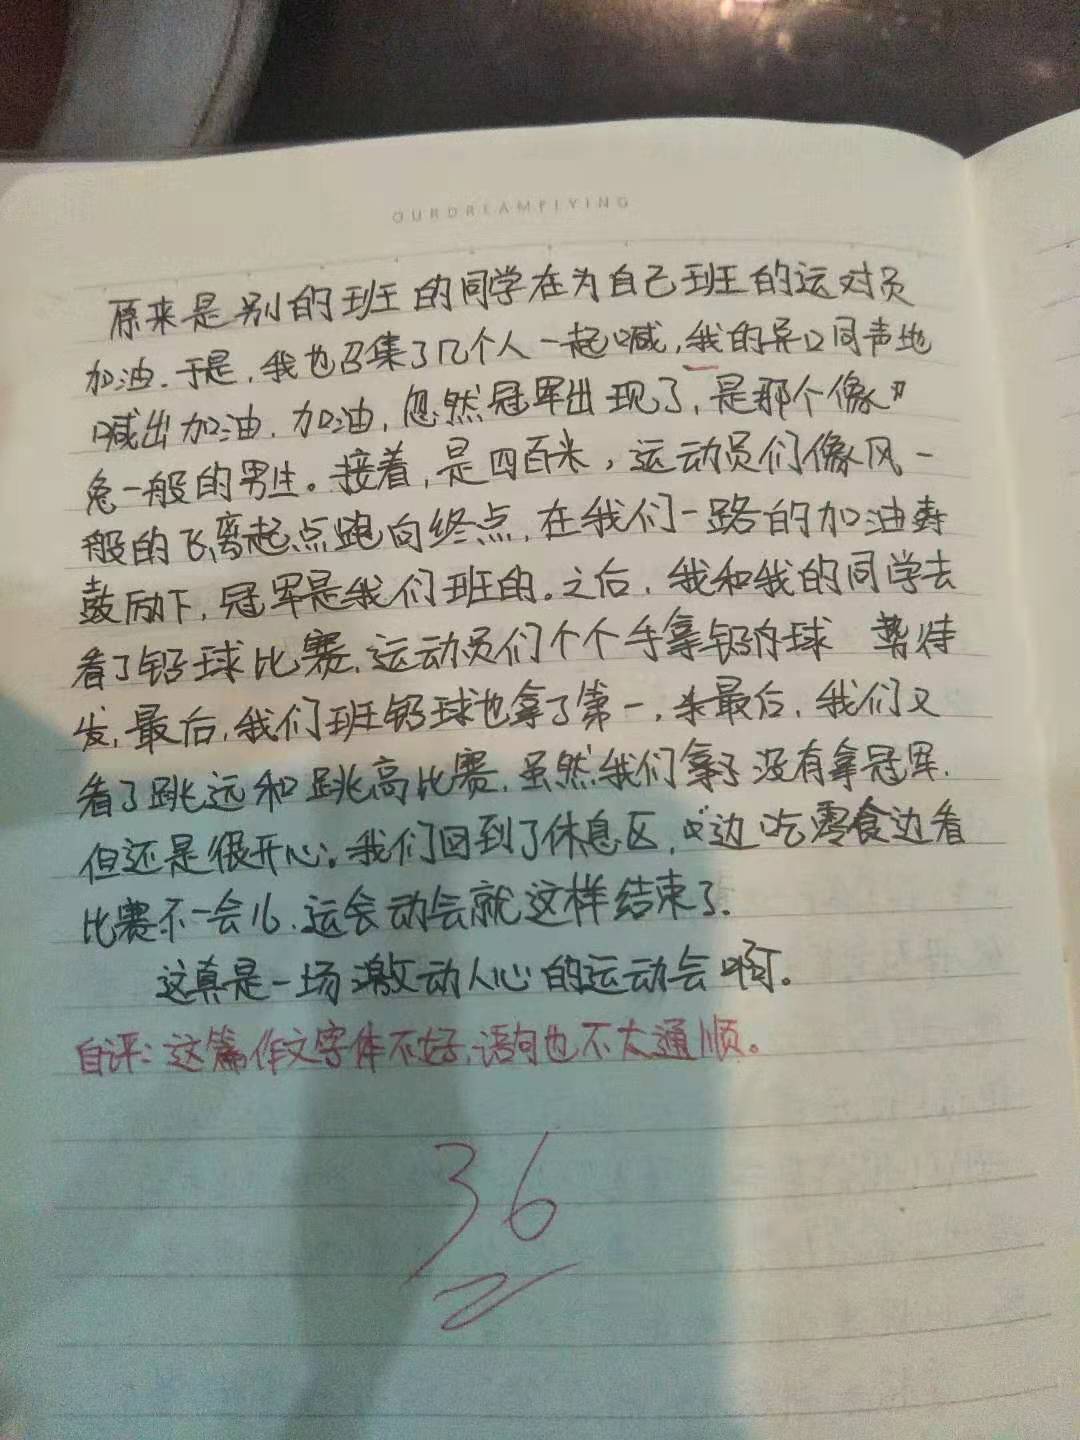 OURDREAMFLYING
原来是别的班的同学在为自己班的运对员
加油.于是,我也召集了几个人一起喊,我的异口同声地
喊出加油.加油,忽然冠军出现了,是那个像
兔一般的男生。接着,是四百米,运动员们像风一
般的飞离起点跑向终点,在我们一路的加油
鼓励下,冠军是我们班的。之后,我和我的同学去
看了铅球比赛,运动员们个个手拿铅球 势待
发,最后,我们班铅球也拿了第一,最后,我们又
看了跳远和跳高比赛.虽然我们没有拿冠军.
但还是很开心。我们回到了休息区,边吃零食边看
比赛不一会儿.运动会就这样结束了.
这真是一场激动人心的运动会啊。
自评:这篇作文字体不好,语句也不太通顺。
36